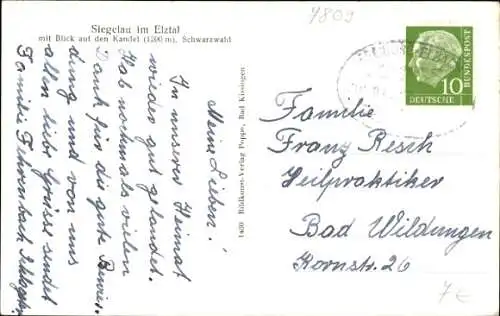 Siegelau im Elztal
mit Blick auf den Kandel (1200 m), Schwarzwald
7809
Meine Lieben!
In unserer Heimat
wieder gut gelandet.
Hab nochmals vielen
Dank für die gute Bewir-
dung und von uns
allen liebe Grüsse sendet
Familie Fehrenbach
1409 Bildkunst-Verlag Poppe, Bad Kissingen
10
DEUTSCHE
BUNDESPOST
Familie
Franz Resch
Heilpraktiker
Bad Wildungen
Kornstr. 26
7€